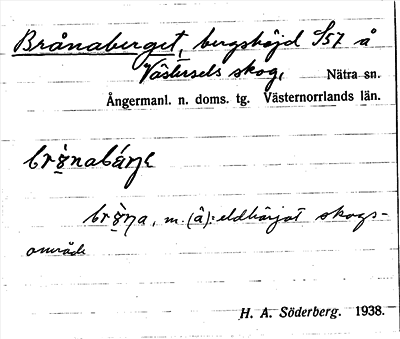 Brånaberget, bergshöjd S57 å
Västersels skog, Nätra sn.
Ångermanl. n. doms. tg. Västernorrlands län.
bròna, m. (â): eldhärjat skogs-
område
H. A. Söderberg. 1938.